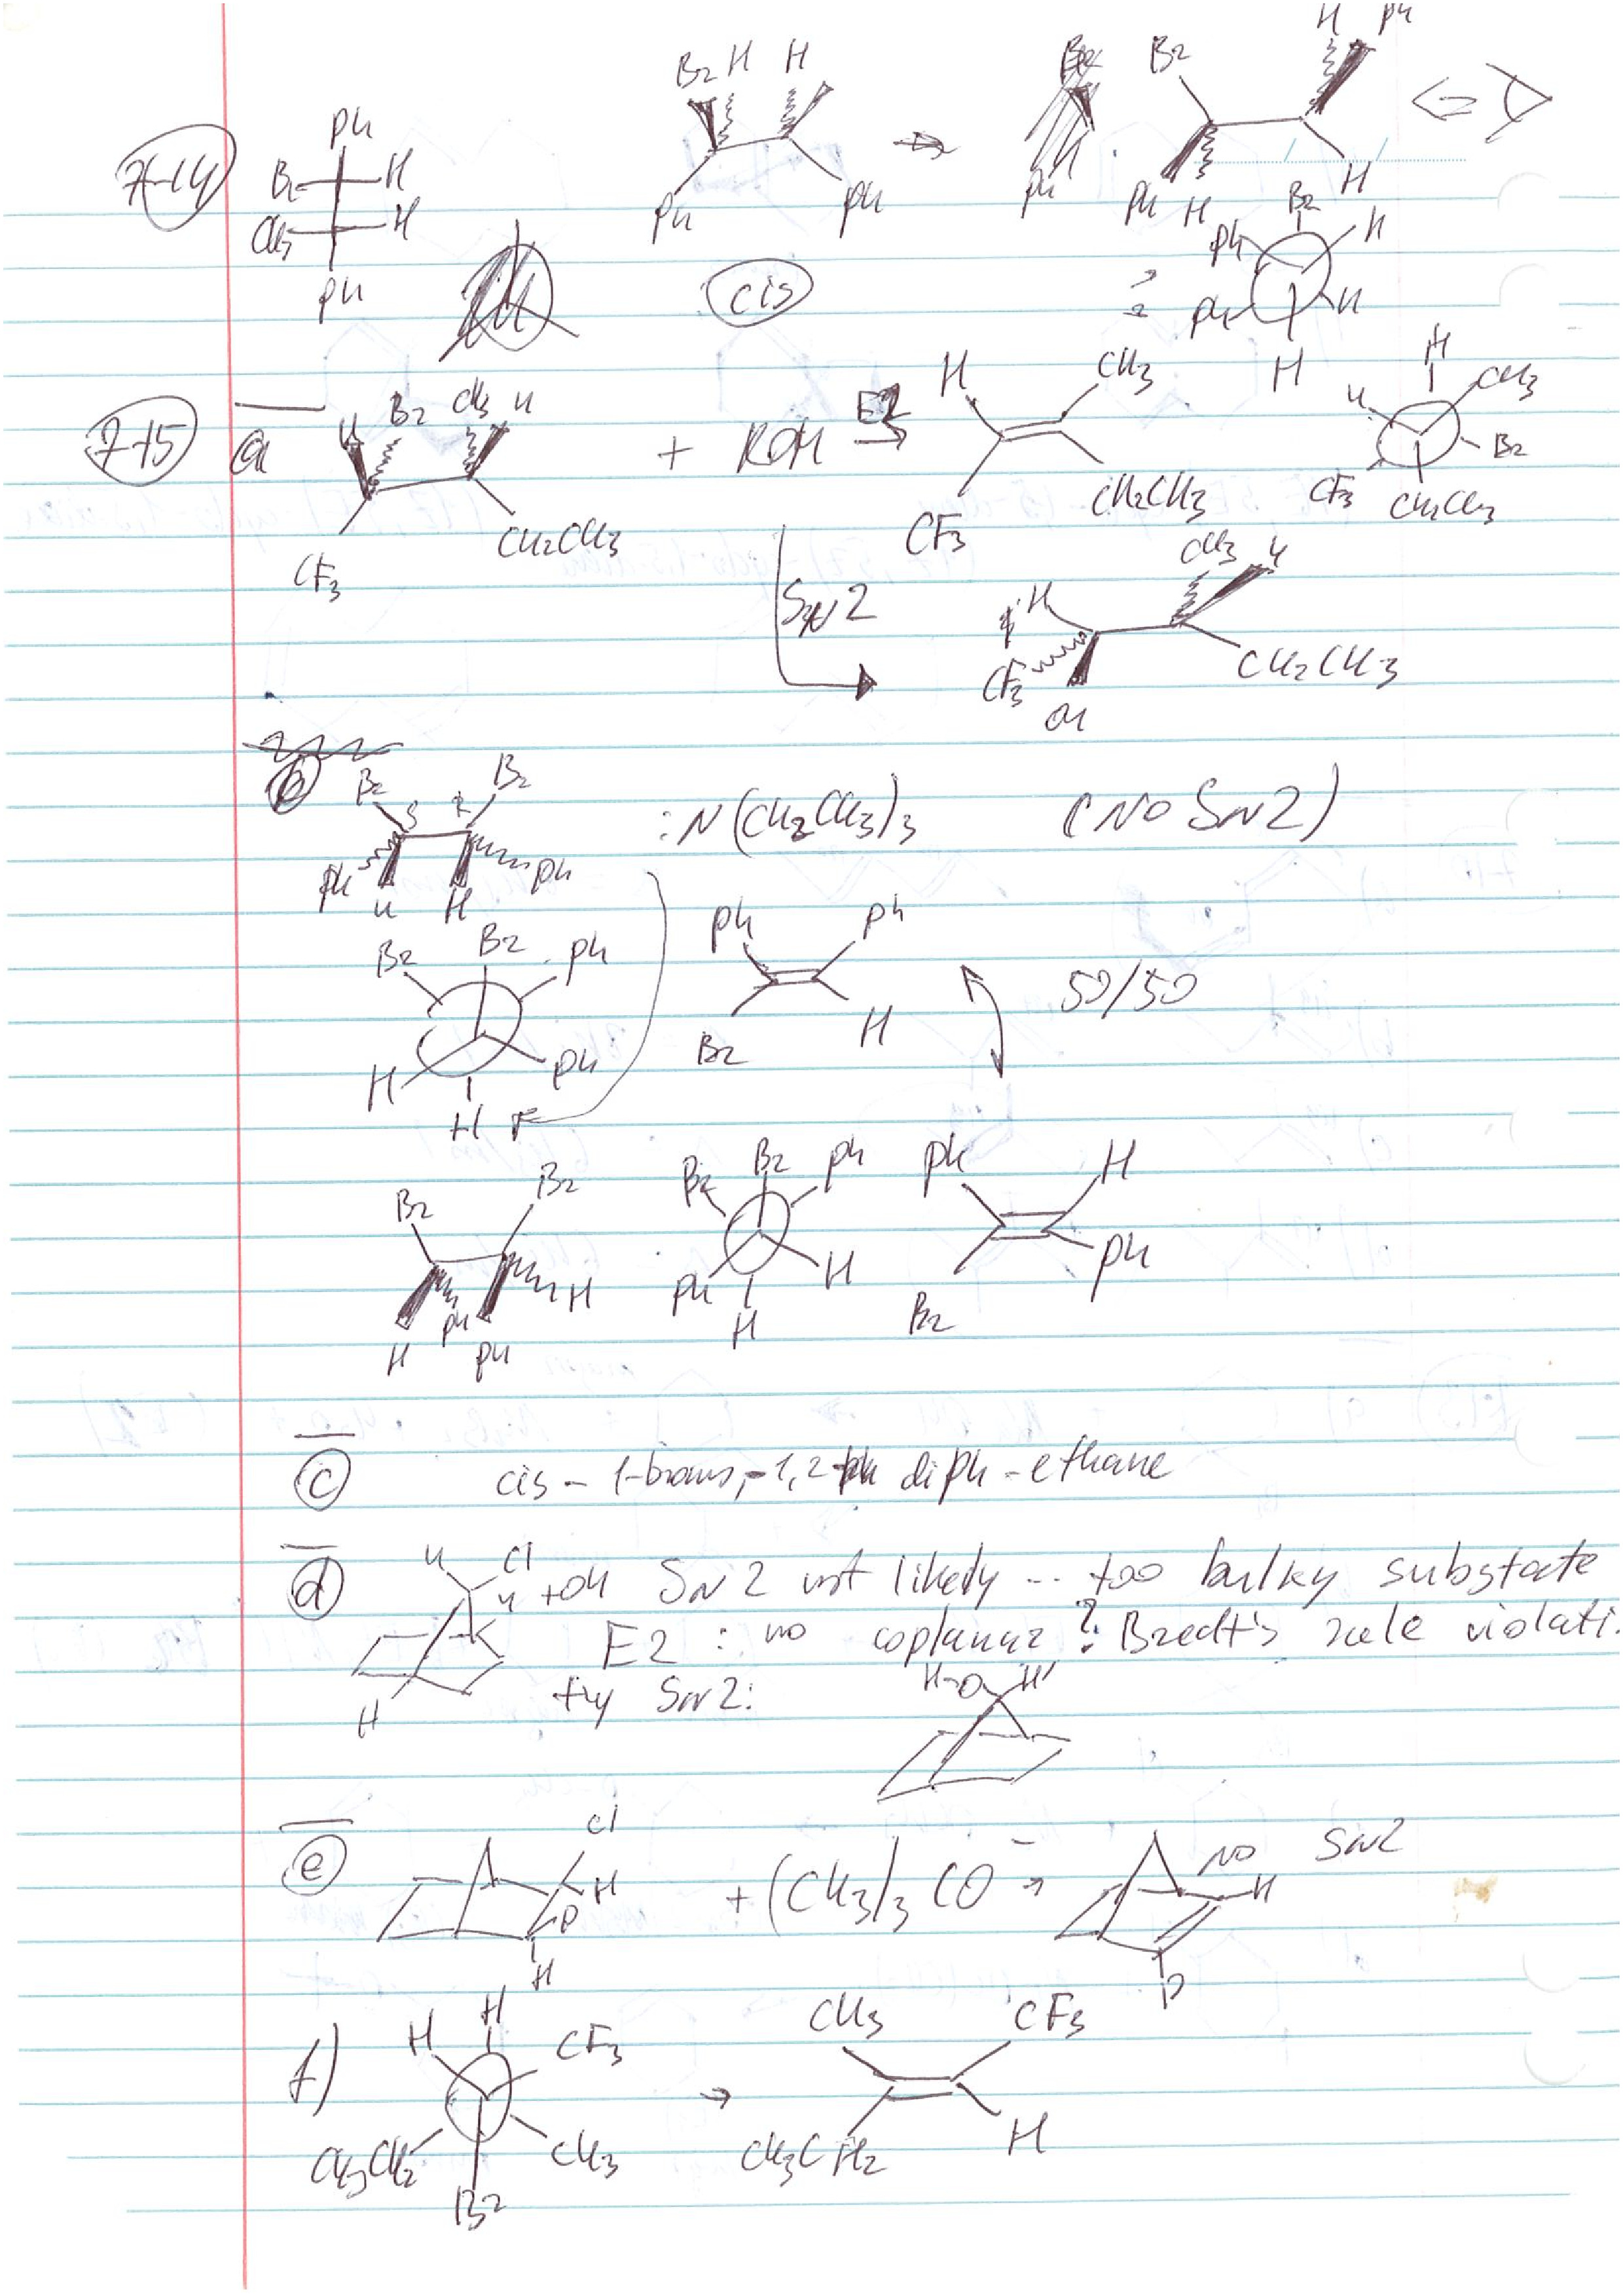 7-14
Ph
Br H
CH3 H
Ph
Br H H
Ph Ph
cis
Br H Ph
Ph H H
Br
Ph H
Ph H
H
7-15
a H Br CH3 H
CF3 CH2CH3
+ KOH E2 →
H CH3
CF3 CH2CH3
H
H CH3
CF3 Br
CH2CH3
SN2
H CH3 H
CF3 CH2CH3
OH
b Br S R Br
Ph H H Ph
:N(CH2CH3)3 (NO SN2)
Br Br Ph
H Ph
H
Ph Ph
Br H
50/50
Br Br
H Ph Ph H
Br Br Ph
Ph H
H
Ph H
Br Ph
c cis - 1-bromo-1,2- diph-ethane
d H Cl
H +OH SN2 not likely -- too bulky substrate
E2 : no coplanar ? Bredt's rule violati.
H try SN2:
H-O H
e Cl
H
D
H
+ (CH3)3 CO⁻ → NO SN2
H
D
f) H H CF3
CH3CH2 CH3
Br
→
CH3 CF3
CH3CH2 H